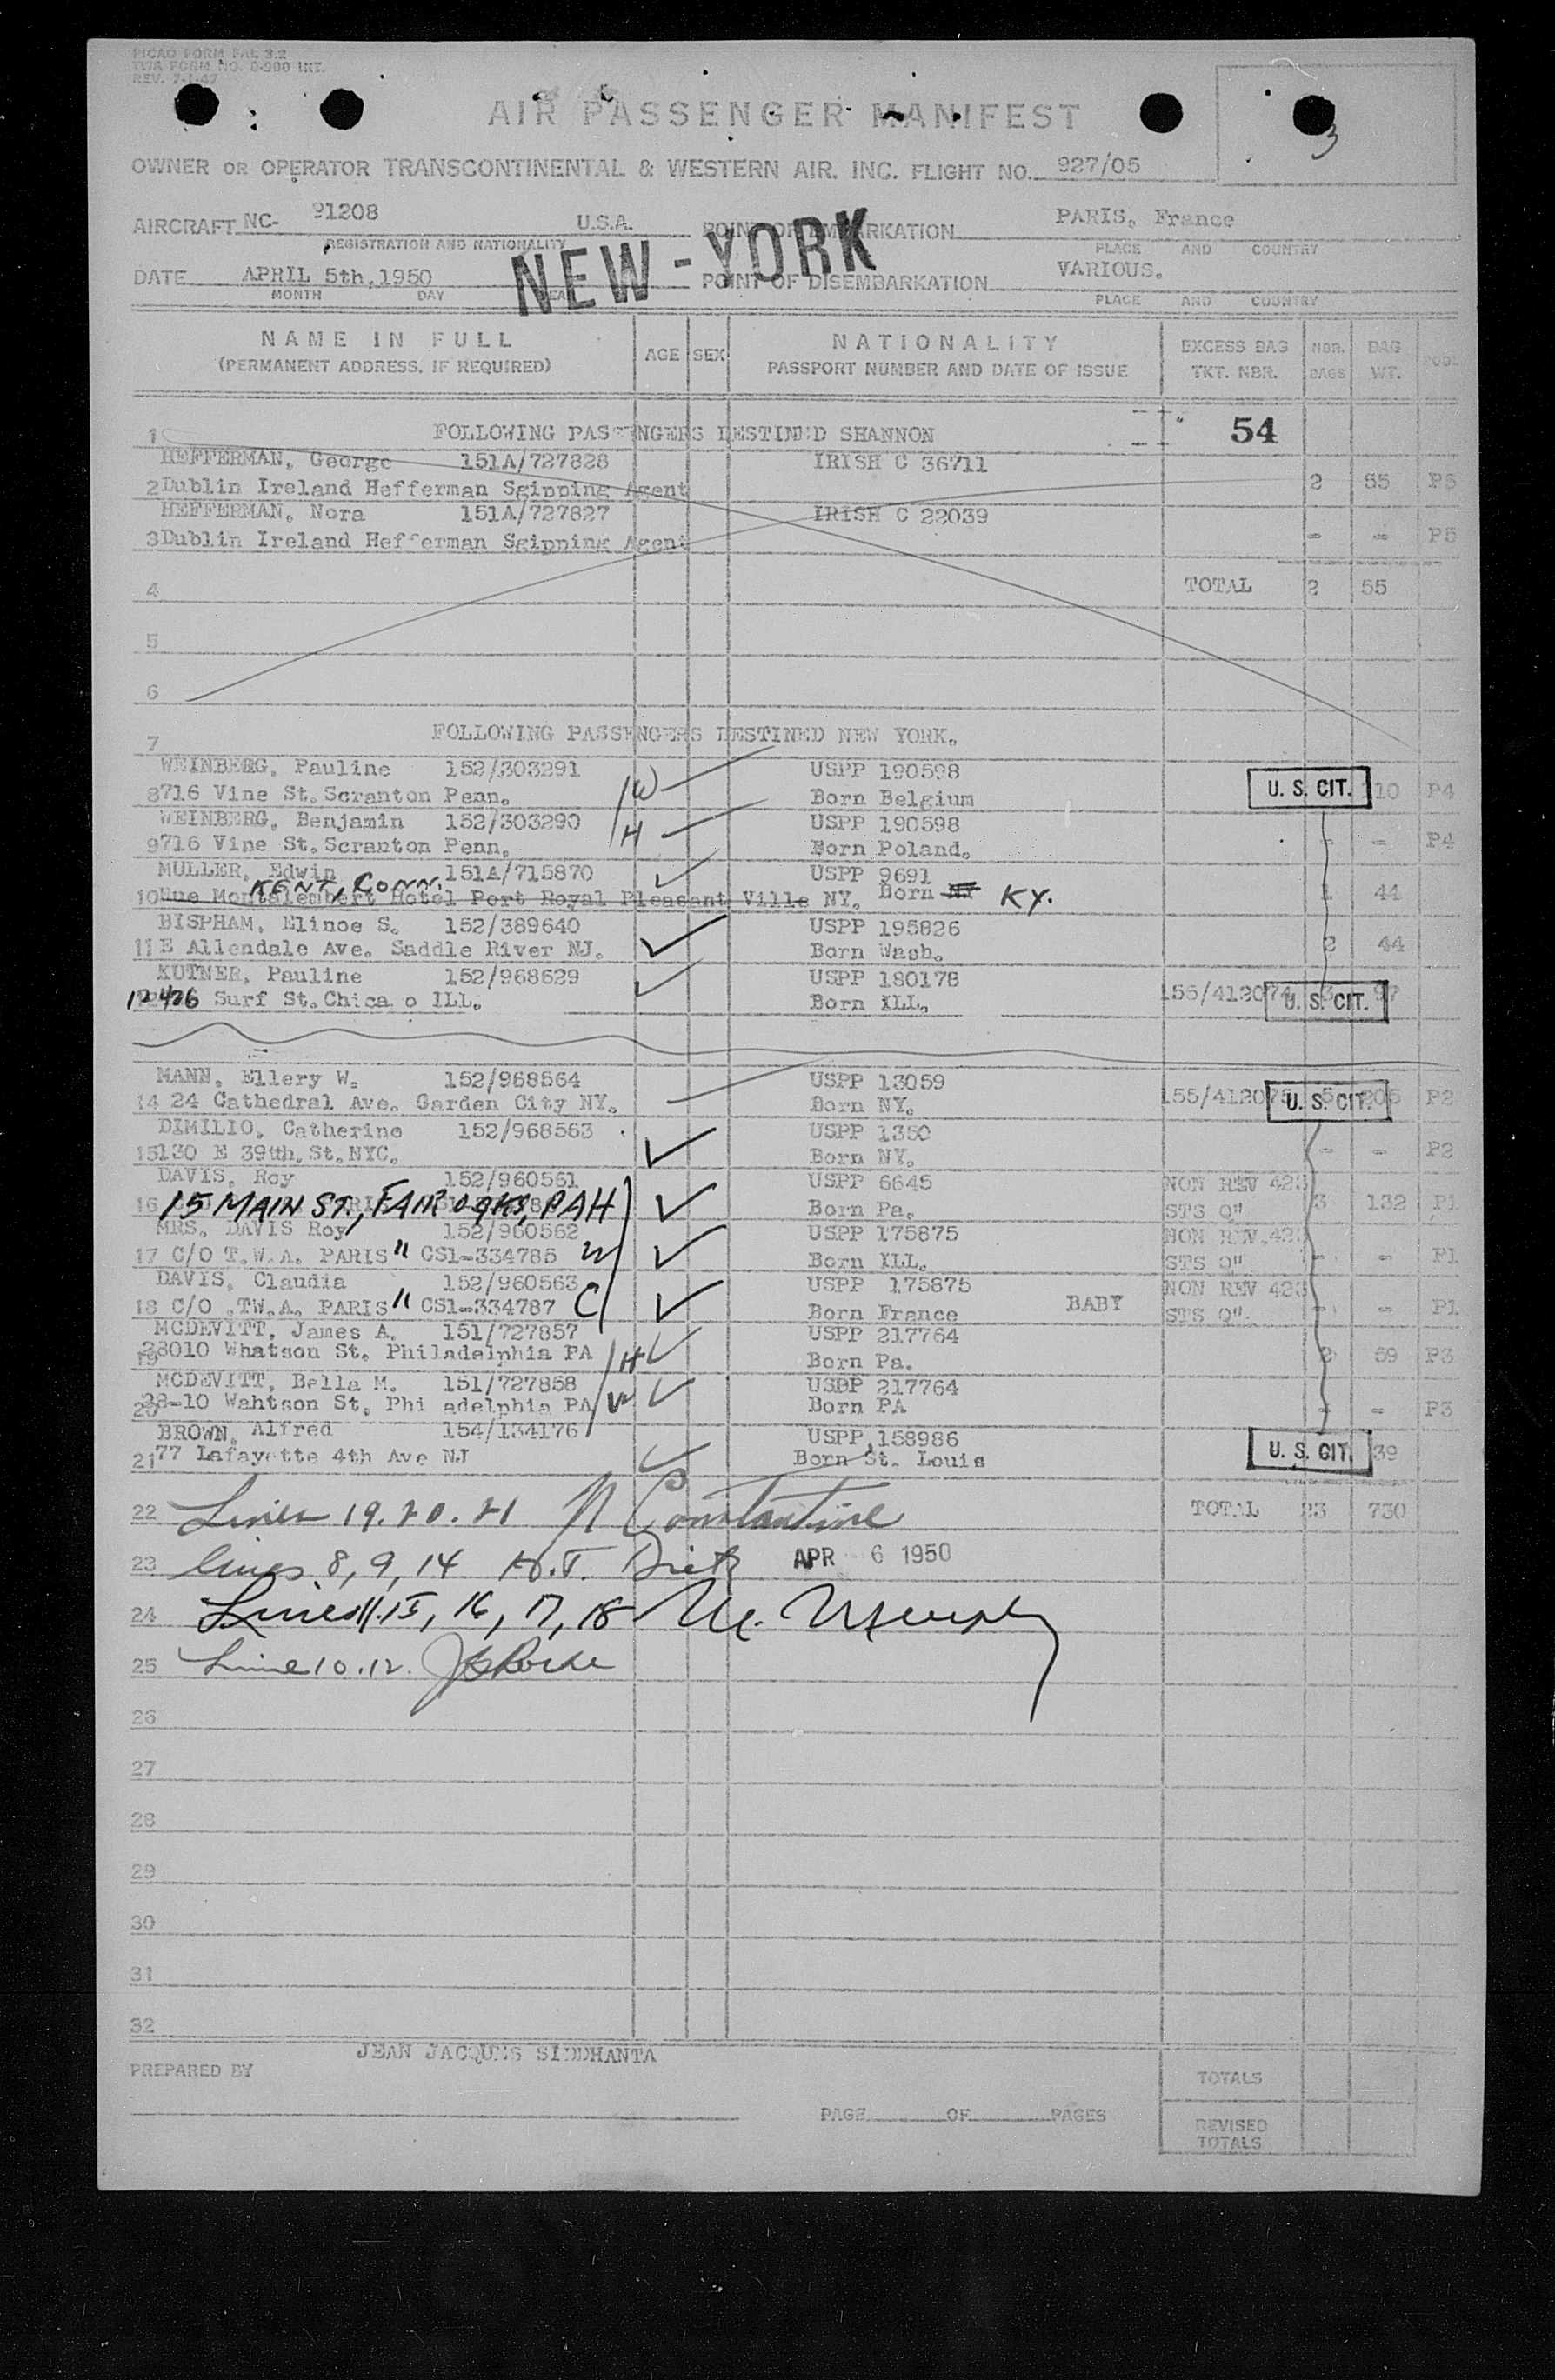 PICAO FORM FAL 3.2
TWA FORM NO. 0-900 INT.
REV. 7-1-47
3
AIR PASSENGER MANIFEST
OWNER OR OPERATOR TRANSCONTINENTAL & WESTERN AIR. INC. FLIGHT NO. 927/05
AIRCRAFT NC- 91208 U.S.A. POINT OF EMBARKATION PARIS, France
REGISTRATION AND NATIONALITY PLACE AND COUNTRY
NEW-YORK
DATE APRIL 5th, 1950 POINT OF DISEMBARKATION VARIOUS.
MONTH DAY YEAR PLACE AND COUNTRY
NAME IN FULL AGE SEX NATIONALITY EXCESS BAG NBR. BAG POOL
(PERMANENT ADDRESS, IF REQUIRED) PASSPORT NUMBER AND DATE OF ISSUE TKT. NBR. BAGS WT.
54
1 FOLLOWING PASSENGERS DESTINED SHANNON
HEFFERMAN, George 151A/727828 IRISH C 36711
2 Dublin Ireland Hefferman Sgipping Agent 2 55 P5
HEFFERMAN, Nora 151A/727827 IRISH C 22039
3 Dublin Ireland Hefferman Sgipping Agent - - P5
4 TOTAL 2 55
5
6
7 FOLLOWING PASSENGERS DESTINED NEW YORK.
WEINBERG, Pauline 152/303291 W USPP 190598
8 716 Vine St. Scranton Penn. Born Belgium U. S. CIT. 110 P4
WEINBERG, Benjamin 152/303290 H USPP 190598
9 716 Vine St. Scranton Penn. Born Poland. - - P4
MULLER, Edwin 151A/715870 USPP 9691
KENT, CONN.
10 Rue Montalembert Hotel Port Royal Pleasant Ville NY. Born NY KY. 1 44
BISPHAM, Elinoe S. 152/389640 USPP 195826
11 E Allendale Ave. Saddle River NJ. Born Wash. 2 44
KUTNER, Pauline 152/968629 USPP 180178
12 426 Surf St. Chica o ILL. Born ILL. 155/412074 U. S. CIT. 3 97
MANN, Ellery W. 152/968564 USPP 13059
14 24 Cathedral Ave. Garden City NY. Born NY. 155/412075 U. S. CIT. 5 205 P2
DIMILIO, Catherine 152/968563 USPP 1350
15 130 E 39th. St. NYC. Born NY. - - P2
DAVIS, Roy 152/960561 USPP 6645 NON REV 423
16 15 MAIN ST., FAIR OAKS, PA H Born Pa. STS Q" 3 132 P1
MRS. DAVIS Roy 152/960562 USPP 175875 NON REV. 423
17 C/O T.W.A. PARIS " CS1-334785 W Born ILL. STS Q" - - P1
DAVIS, Claudia 152/960563 USPP 175875 NON REV 423
18 C/O .TW.A. PARIS " CS1-334787 C Born France BABY STS Q". - - P1
MCDEVITT, James A. 151/727857 USPP 217764
19 28010 Whatson St. Philadelphia PA H Born Pa. 2 59 P3
MCDEVITT, Bella M. 151/727858 USPP 217764
20 28-10 Wahtson St. Phi adelphia PA W Born PA - - P3
BROWN, Alfred 154/134176 USPP 158986
21 77 Lafayette 4th Ave NJ Born St. Louis U. S. CIT. 39
22 Lines 19. 20. 21 N Constantine TOTAL 23 730
23 lines 8, 9, 14 H.T. Dietz APR 6 1950
24 Lines 11. 15, 16, 17, 18 M. Murphy
25 Line 10. 12.
26
27
28
29
30
31
32
JEAN JACQUES SIDDHANTA
PREPARED BY TOTALS
PAGE OF PAGES
REVISED
TOTALS